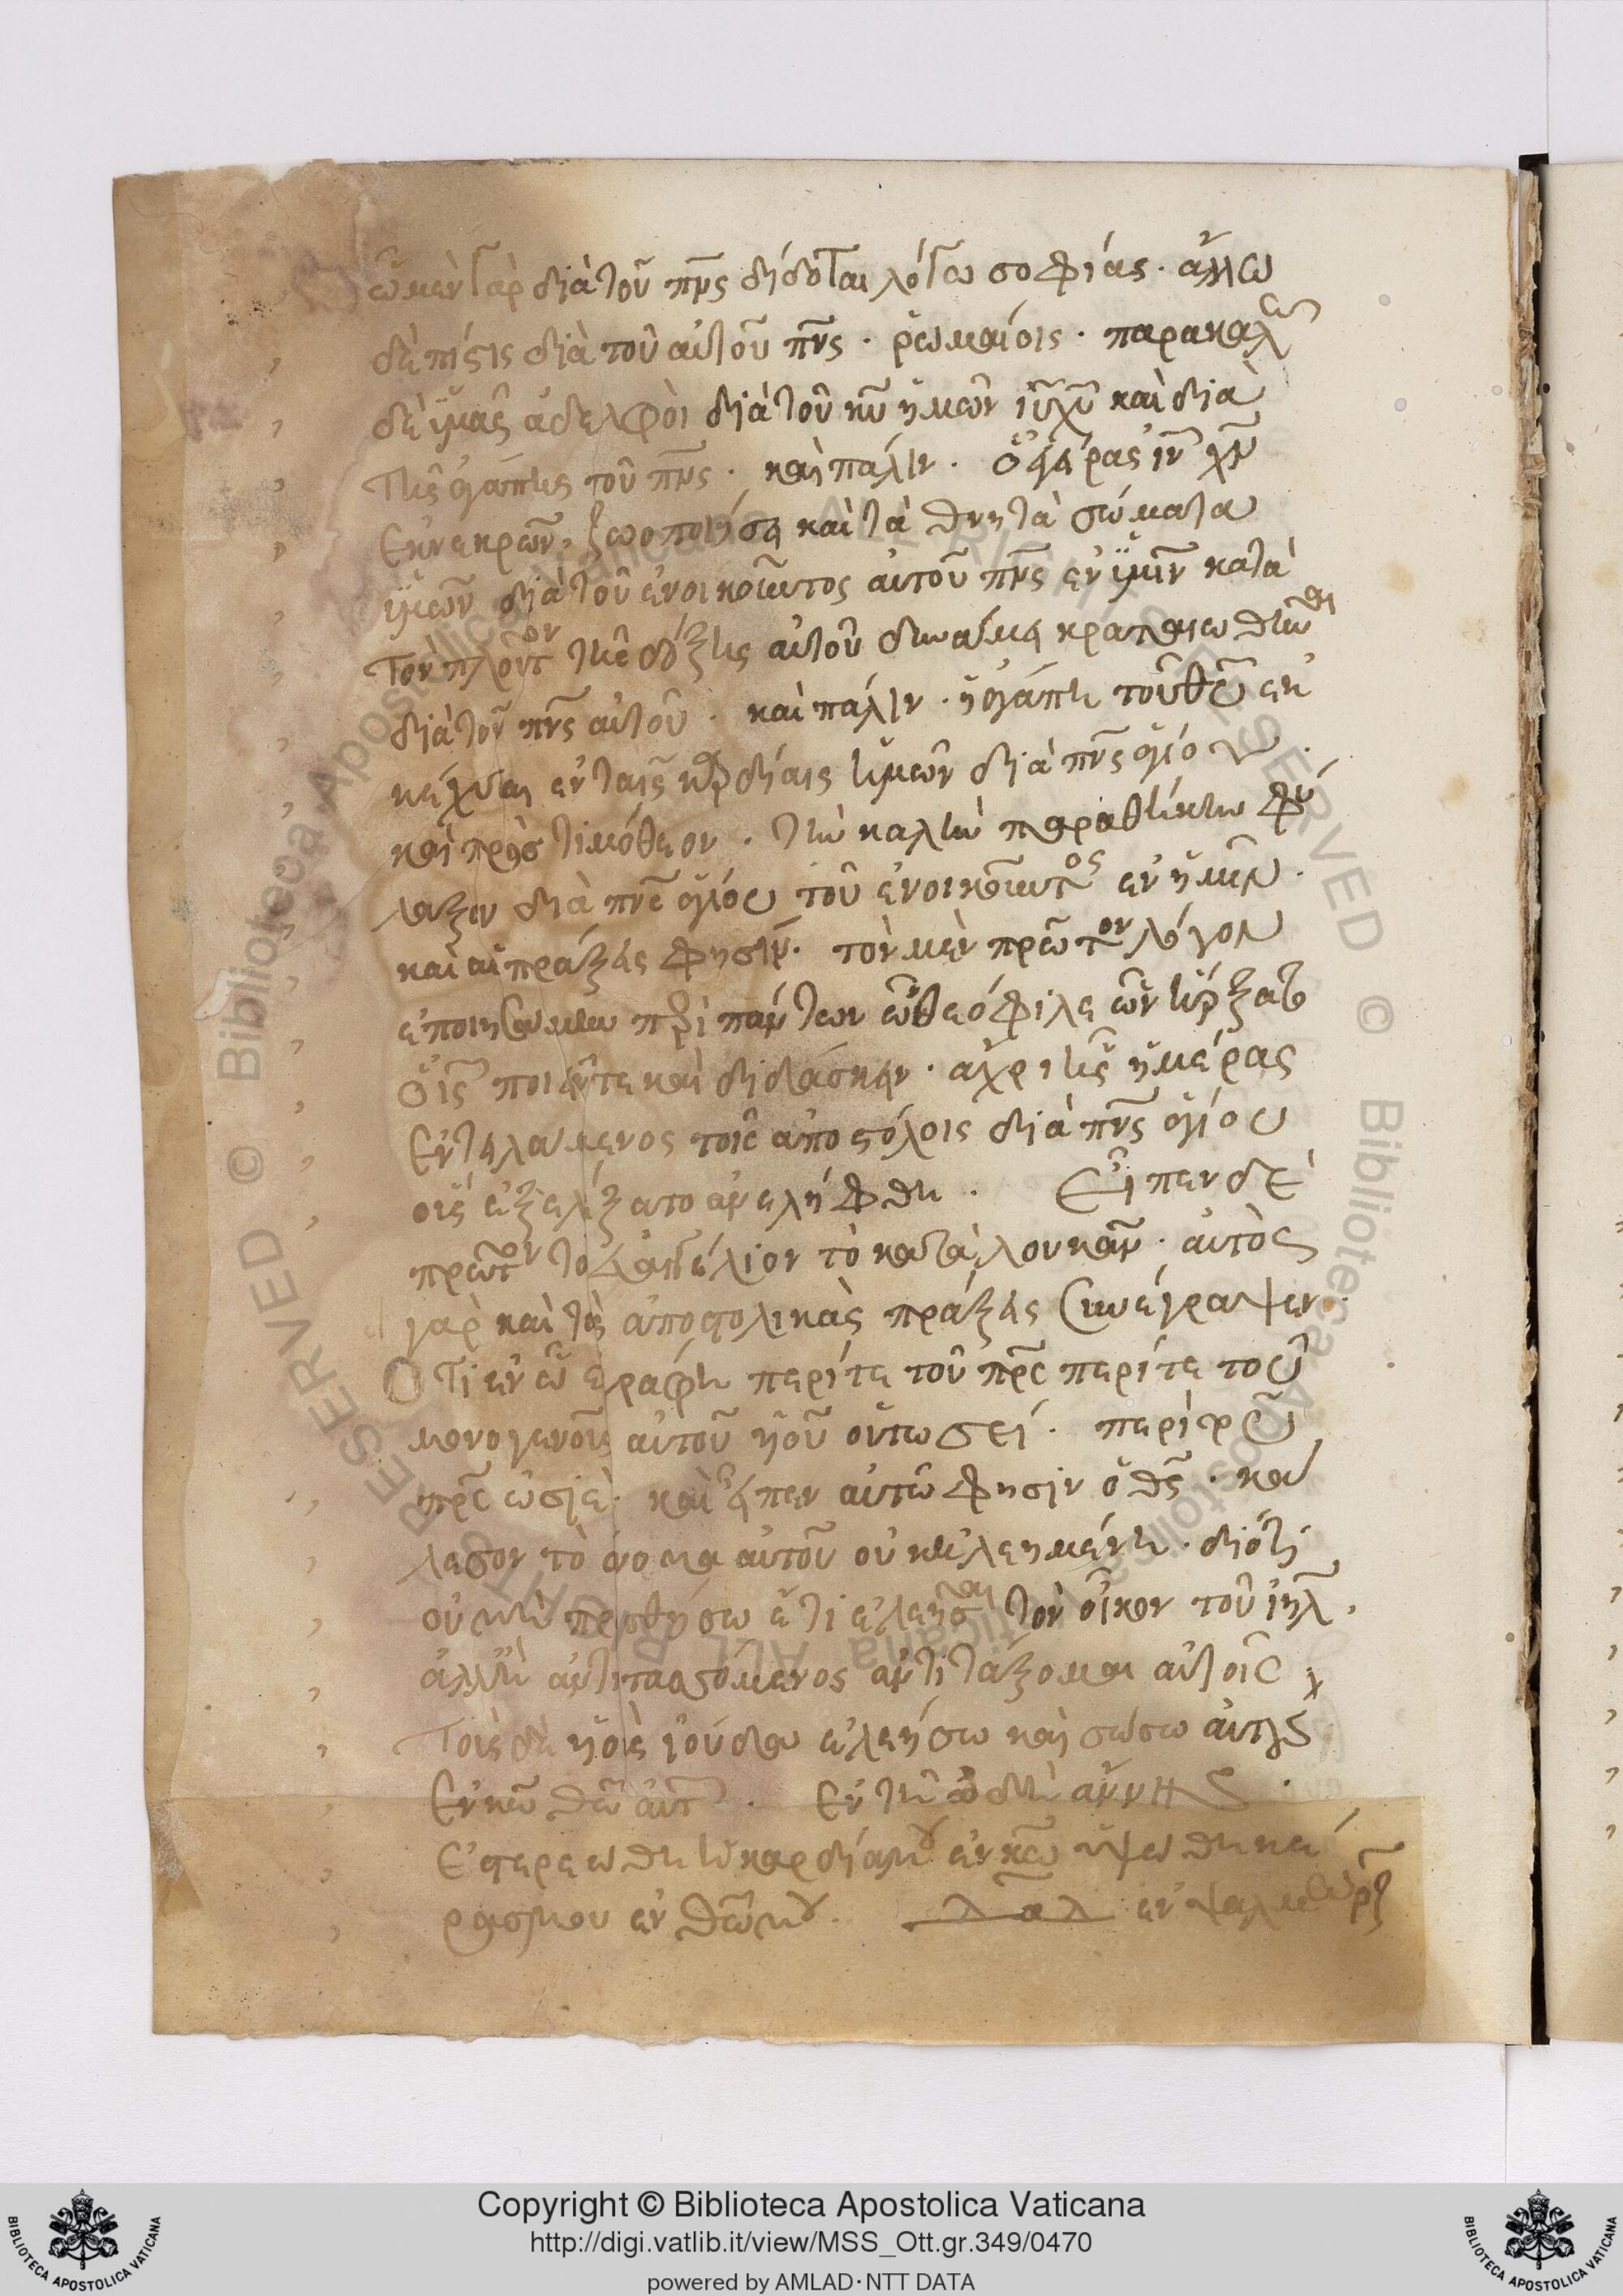 ὧ μὲν γὰρ διὰ τοῦ πνς δίδοται λόγω σοφίας· ἄλλω
δὲ πίστις διὰ τοῦ αὐτοῦ πνς· ῥωμαίοις· παρακαλῶ
δὲ ὑμᾶς ἀδελφοὶ διὰ τοῦ κυ ἡμῶν ιυ χυ καὶ διὰ
τῆς ἀγάπης τοῦ πνς· καὶ πάλιν· ὁ ἐγείρας ιν χν
ἐκ νεκρῶν, ζωοποιήσει καὶ τὰ θνητὰ σώματα
ὑμῶν διὰ τοῦ ἐνοικοῦντος αὐτοῦ πνς ἐν ὑμῖν κατὰ
τὸν πλοῦτον τῆς δόξης αὐτοῦ δυνάμει κραταιωθῆναι
διὰ τοῦ πνς αὐτοῦ· καὶ πάλιν· ἡ ἀγάπη τοῦ θυ ἐκ
κέχυται ἐν ταῖς καρδίαις ἡμῶν διὰ πνς ἁγίου·
καὶ πρὸς τιμόθεον· τὴν καλὴν παραθήκην φύ
λαξον διὰ πνς ἁγίου τοῦ ἐνοικοῦντος ἐν ἡμῖν·
καὶ αἱ πράξεις φησίν· τὸν μὲν πρῶτον λόγον
ἐποιησάμην περὶ πάντων ὦ θεόφιλε ὧν ἤρξατο
ὁ ις ποιεῖν τε καὶ διδάσκειν· ἄχρι ἧς ἡμέρας
ἐντειλάμενος τοῖς ἀποστόλοις διὰ πνς ἁγίου
οὓς ἐξελέξατο ἀνελήφθη· Εἶπεν δὲ
πρῶτον τὸ εὐαγγέλιον τὸ κατὰ λουκᾶν· αὐτὸς
γὰρ καὶ τὰς ἀποστολικὰς πράξεις συνέγραψεν·
Ὅτι ἐν ὧ ἐγράφη περί τε τοῦ πρς περί τε τοῦ
μονογενοῦς αὐτοῦ υἱοῦ οὕτωσεί· περὶ τοῦ
πρς ὠσιέ· καὶ εἶπεν αὐτῶ φησιν ὁ θς· κά
λεσον τὸ ὄνομα αὐτοῦ οὐκ ἠλεημένη· διότι
οὐ μὴ προσθήσω ἔτι ἐλεῆσαι τὸν οἶκον τοῦ ιηλ,
ἀλλ' ἢ ἀντιτασσόμενος ἀντιτάξομαι αὐτοῖς,
τοὺς δὲ υἱοὺς ἰούδα ἐλεήσω καὶ σώσω αὐτοὺς
ἐν κω θω αὐτῶν· Ἐν τῆ ὠδῆ ἄννης·
Ἐστερεώθη ἡ καρδία μου ἐν κω ὑψώθη κέ
ρας μου ἐν θω μου· δαδ ἐν ψαλμῶ